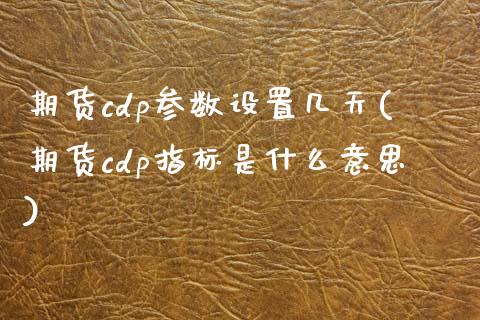 期货cdp参数设置几天(
期货cdp指标是什么意思
)